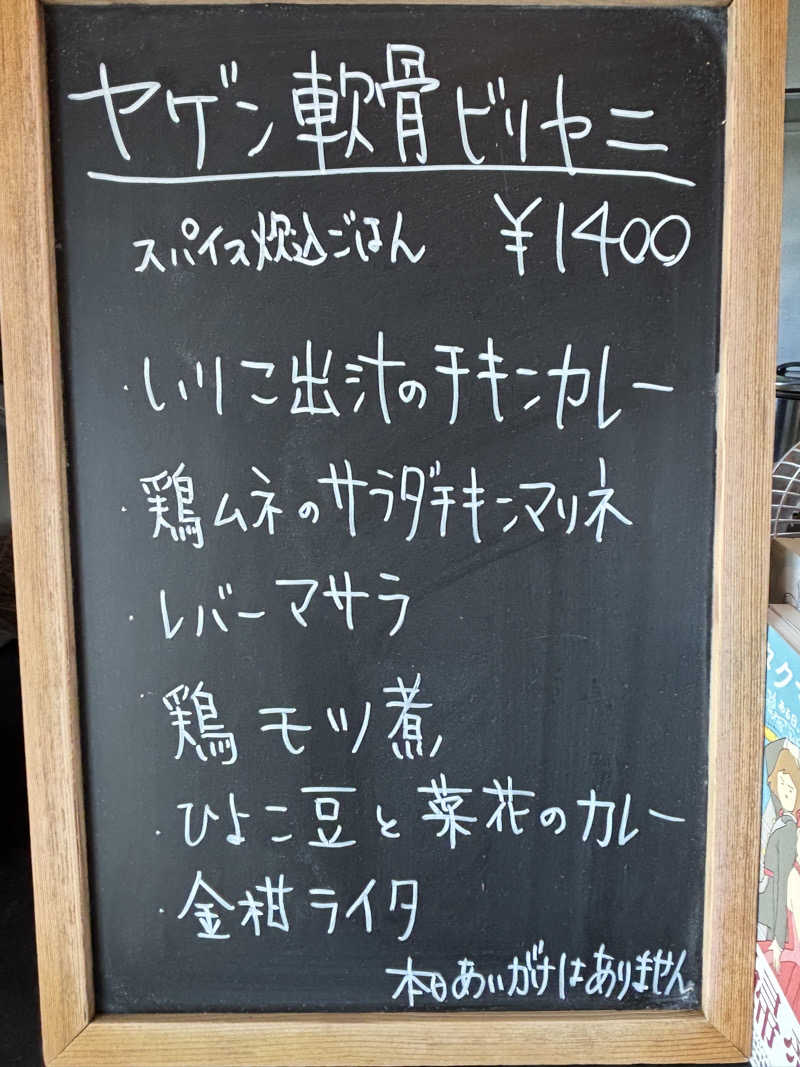 ヤゲン軟骨ビリヤニ
スパイス炊込ごはん ¥1400
・いりこ出汁のチキンカレー
・鶏ムネのサラダチキンマリネ
・レバーマサラ
・鶏モツ煮
・ひよこ豆と菜花のカレー
・金柑ライタ
本日あいがけはありません